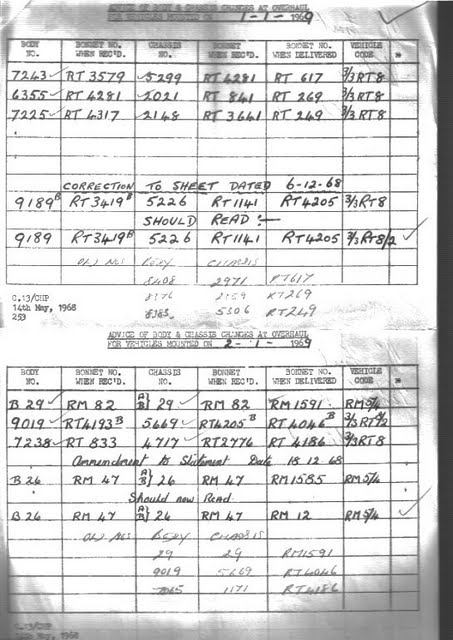 ADVICE OF BODY & CHASSIS CHANGES AT OVERHAUL
FOR VEHICLES MOUNTED ON 1-1-1969
BODY NO. BONNET NO. WHEN REC'D. CHASSIS NO. BONNET WHEN REC'D. BONNET NO. WHEN DELIVERED VEHICLE CODE
7243 RT 3579 5299 RT 4281 RT 617 3/3RT8
6355 RT 4281 2021 RT 841 RT 269 3/3RT8
7225 RT 4317 2148 RT 3641 RT 249 3/3RT8
CORRECTION TO SHEET DATED 6-12-68
9189 B RT3419 B 5226 RT1141 RT4205 3/3RT8
SHOULD READ :-
9189 RT3419 B 5226 RT1141 RT4205 3/3RT8/2
OLD NOS BODY CHASSIS
8408 2971 RT617
8376 RT269
5306 RT249
C.13/CHP
14th May, 1968
253
ADVICE OF BODY & CHASSIS CHANGES AT OVERHAUL
FOR VEHICLES MOUNTED ON 2-1-1969
BODY NO. BONNET NO. WHEN REC'D. CHASSIS NO. BONNET WHEN REC'D. BONNET NO. WHEN DELIVERED VEHICLE CODE
B 29 RM 82 A/B} 29 RM 82 RM 1591 RM5/4
9019 RT4193 B 5669 RT4205 B RT 4046 B 3/3RT8/2
7238 RT 833 4717 RT2776 RT 4186 3/3RT8
Ammendment to Statement Date 18 12 68
B 26 RM 47 A/B} 26 RM 47 RM1585 RM5/4
Should now Read
B 26 RM 47 A/B} 26 RM 47 RM 12 RM5/4
OLD NOS BODY CHASSIS
29 29 RM1591
9019 5669 RT4046
7065 1171 RT4186
C.13/CHP
14th May, 1968